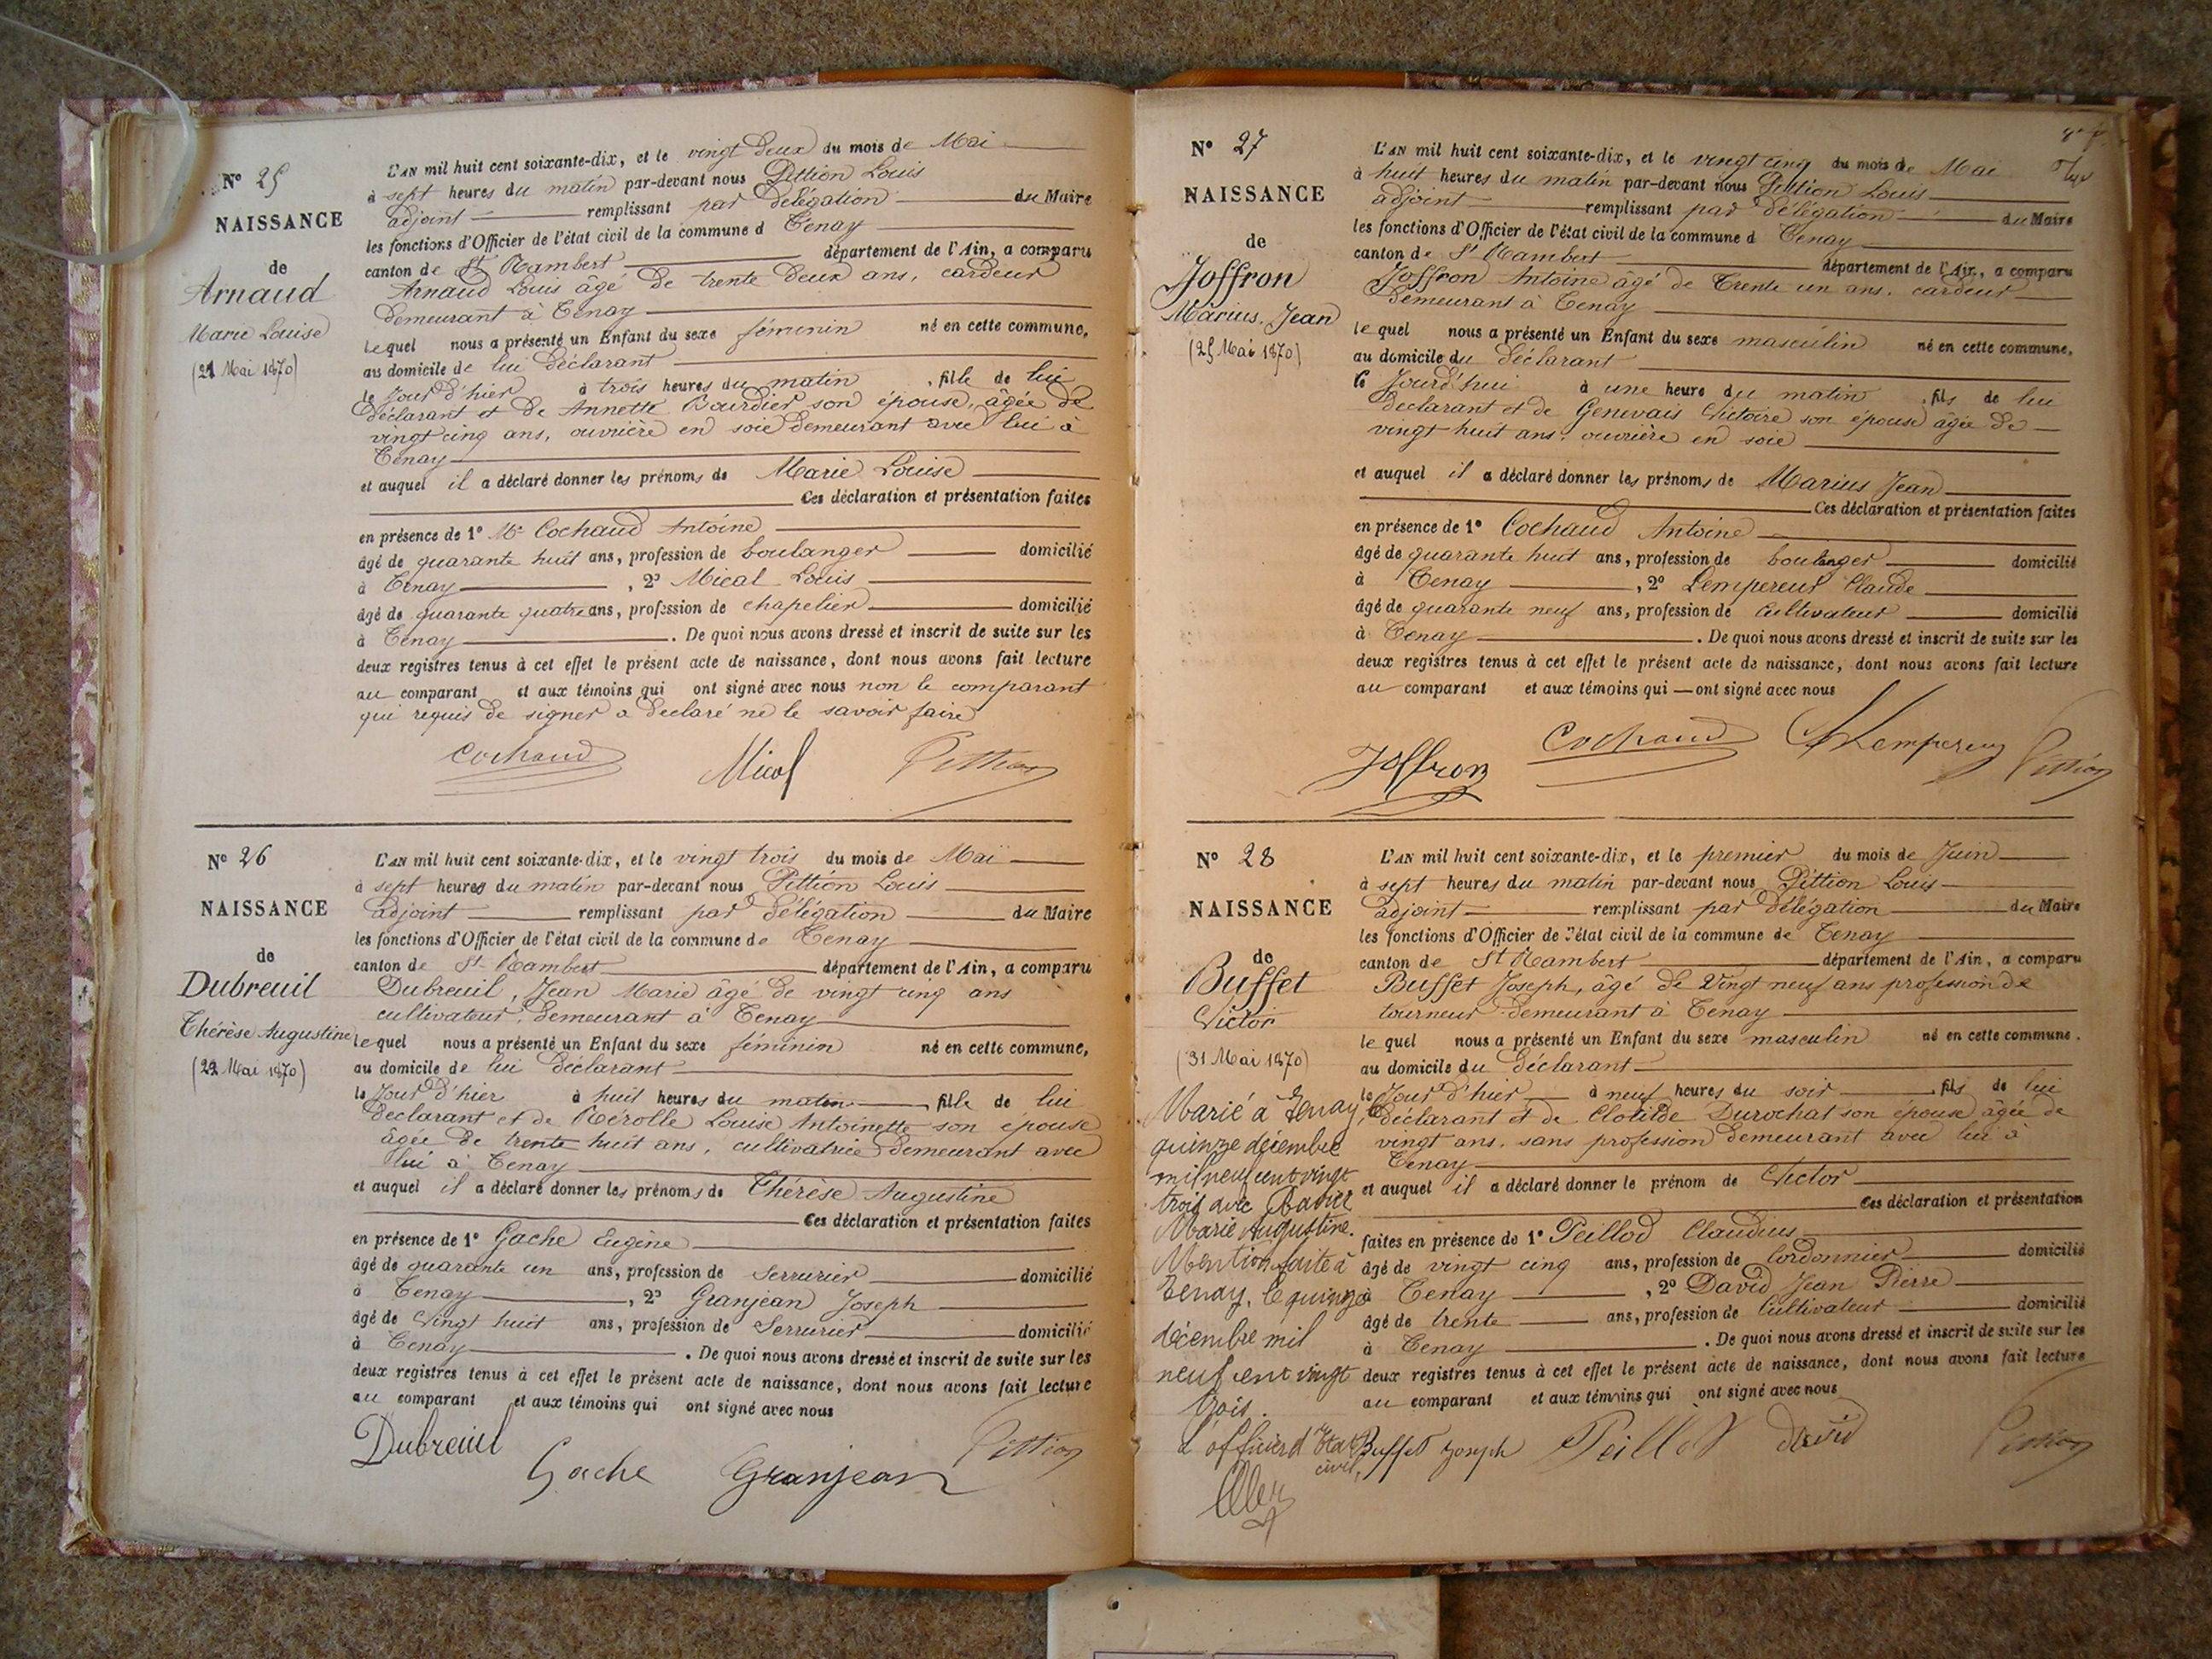 N° 25
NAISSANCE
de
Arnaud
Marie Louise
(21 Mai 1870)
L'AN mil huit cent soixante-dix, et le vingt deux du mois de Mai
à sept heures du matin par-devant nous Pittion Louis
adjoint remplissant par délégation du Maire
les fonctions d'Officier de l'état civil de la commune d Tenay
canton de St Rambert département de l'Ain, a comparu
Arnaud Louis âgé de trente deux ans, cardeur
demeurant à Tenay
lequel nous a présenté un Enfant du sexe féminin né en cette commune,
au domicile de lui déclarant
le Jour d'hier à trois heures du matin, fille de lui
déclarant et de Annette Bourdier son épouse, âgée de
vingt cinq ans, ouvrière en soie demeurant avec lui à
Tenay
et auquel il a déclaré donner les prénoms de Marie Louise
Ces déclaration et présentation faites
en présence de 1° Mr Cochaud Antoine
âgé de quarante huit ans, profession de boulanger domicilié
à Tenay, 2° Mical Louis
âgé de quarante quatre ans, profession de chapelier domicilié
à Tenay. De quoi nous avons dressé et inscrit de suite sur les
deux registres tenus à cet effet le présent acte de naissance, dont nous avons fait lecture
au comparant et aux témoins qui ont signé avec nous non le comparant
qui requis de signer a déclaré ne le savoir faire
Cochaud Mical Pittion
N° 26
NAISSANCE
de
Dubreuil
Thérèse Augustine
(22 Mai 1870)
L'AN mil huit cent soixante-dix, et le vingt trois du mois de Mai
à sept heures du matin par-devant nous Pittion Louis
adjoint remplissant par délégation du Maire
les fonctions d'Officier de l'état civil de la commune de Tenay
canton de St Rambert département de l'Ain, a comparu
Dubreuil, Jean Marie âgé de vingt cinq ans
cultivateur, demeurant à Tenay
lequel nous a présenté un Enfant du sexe féminin né en cette commune,
au domicile de lui déclarant
le Jour d'hier à huit heures du matin, fille de lui
déclarant et de Rérolle Louise Antoinette son épouse
âgée de trente huit ans, cultivatrice demeurant avec
lui à Tenay
et auquel il a déclaré donner les prénoms de Thérèse Augustine
Ces déclaration et présentation faites
en présence de 1° Gache Eugène
âgé de quarante un ans, profession de Serrurier domicilié
à Tenay, 2° Granjean Joseph
âgé de Vingt huit ans, profession de Serrurier domicilié
à Tenay. De quoi nous avons dressé et inscrit de suite sur les
deux registres tenus à cet effet le présent acte de naissance, dont nous avons fait lecture
au comparant et aux témoins qui ont signé avec nous
Dubreuil Gache Granjean Pittion
N° 27
NAISSANCE
de
Joffron
Marius, Jean
(25 Mai 1870)
L'AN mil huit cent soixante-dix, et le vingt cinq du mois de Mai
à huit heures du matin par-devant nous Pittion Louis
adjoint remplissant par délégation du Maire
les fonctions d'Officier de l'état civil de la commune d Tenay
canton de St Rambert département de l'Ain, a comparu
Joffron Antoine âgé de Trente un ans, cardeur
demeurant à Tenay
lequel nous a présenté un Enfant du sexe masculin né en cette commune,
au domicile du déclarant
le Jourd'hui à une heure du matin, fils de lui
déclarant et de Genevais Victoire son épouse âgée de
vingt huit ans, ouvrière en soie
et auquel il a déclaré donner les prénoms de Marius Jean
Ces déclaration et présentation faites
en présence de 1° Cochaud Antoine
âgé de quarante huit ans, profession de boulanger domicilié
à Tenay, 2° Lempereur Claude
âgé de quarante neuf ans, profession de Cultivateur domicilié
à Tenay. De quoi nous avons dressé et inscrit de suite sur les
deux registres tenus à cet effet le présent acte de naissance, dont nous avons fait lecture
au comparant et aux témoins qui ont signé avec nous
Joffron Cochaud Lempereur Pittion
N° 28
NAISSANCE
de
Buffet
Victor
(31 Mai 1870)
Marié à Tenay, le
quinze décembre
mil neuf cent vingt
trois avec
Marie Augustine.
Mention faite à
Tenay, le quinze
décembre mil
neuf cent vingt
trois.
L'officier d'Etat
civil,
L'AN mil huit cent soixante-dix, et le premier du mois de Juin
à sept heures du matin par-devant nous Pittion Louis
adjoint remplissant par délégation du Maire
les fonctions d'Officier de l'état civil de la commune de Tenay
canton de St Rambert département de l'Ain, a comparu
Buffet Joseph, âgé de Vingt neuf ans profession de
tourneur demeurant à Tenay
lequel nous a présenté un Enfant du sexe masculin né en cette commune.
au domicile du déclarant
le Jour d'hier à neuf heures du soir, fils de lui
déclarant et de Clotilde Durochat son épouse âgée de
vingt ans, sans profession demeurant avec lui à
Tenay
et auquel il a déclaré donner le prénom de Victor
Ces déclaration et présentation
faites en présence de 1° Peillod Claudius
âgé de vingt cinq ans, profession de Cordonnier domicilié
à Tenay, 2° David Jean Pierre
âgé de trente ans, profession de Cultivateur domicilié
à Tenay. De quoi nous avons dressé et inscrit de suite sur les
deux registres tenus à cet effet le présent acte de naissance, dont nous avons fait lecture
au comparant et aux témoins qui ont signé avec nous
Buffet Joseph Peillod David Pittion